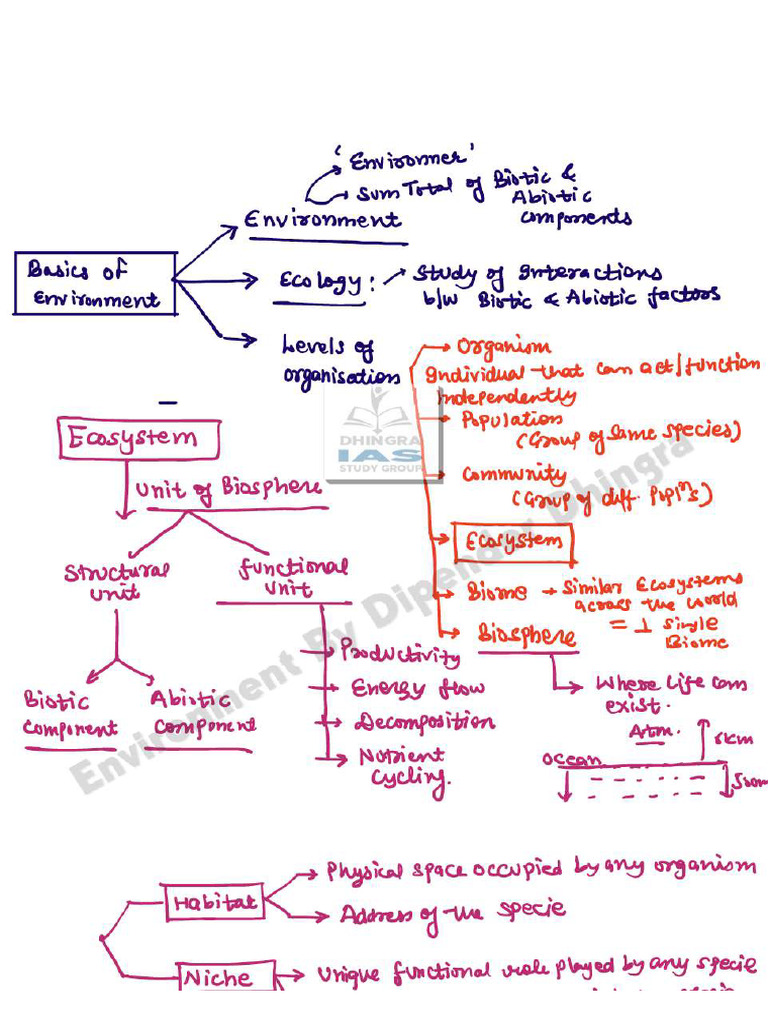 'Environner'
Sum Total of Biotic &
Abiotic
components
Environment
Basics of
Environment
Ecology : Study of Interactions
b/w Biotic & Abiotic factors
Levels of
organisation
Organism
Individual that can act/function
independently
Population
(Group of same species)
Community
(Group of diff. Popl'ns)
Ecosystem
Biome → Similar Ecosystems
across the world
= 1 Single
Biome
Biosphere
Where life can
exist.
Atm.
Ocean
DHINGRA
IAS
STUDY GROUP
Ecosystem
Unit of Biosphere
Structural
unit
functional
unit
Biotic
component
Abiotic
component
Productivity
Energy flow
Decomposition
Nutrient
cycling.
Environment By Dipender Dhingra
Habitat
Physical space occupied by any organism
Address of the specie
Niche
Unique functional role played by any specie